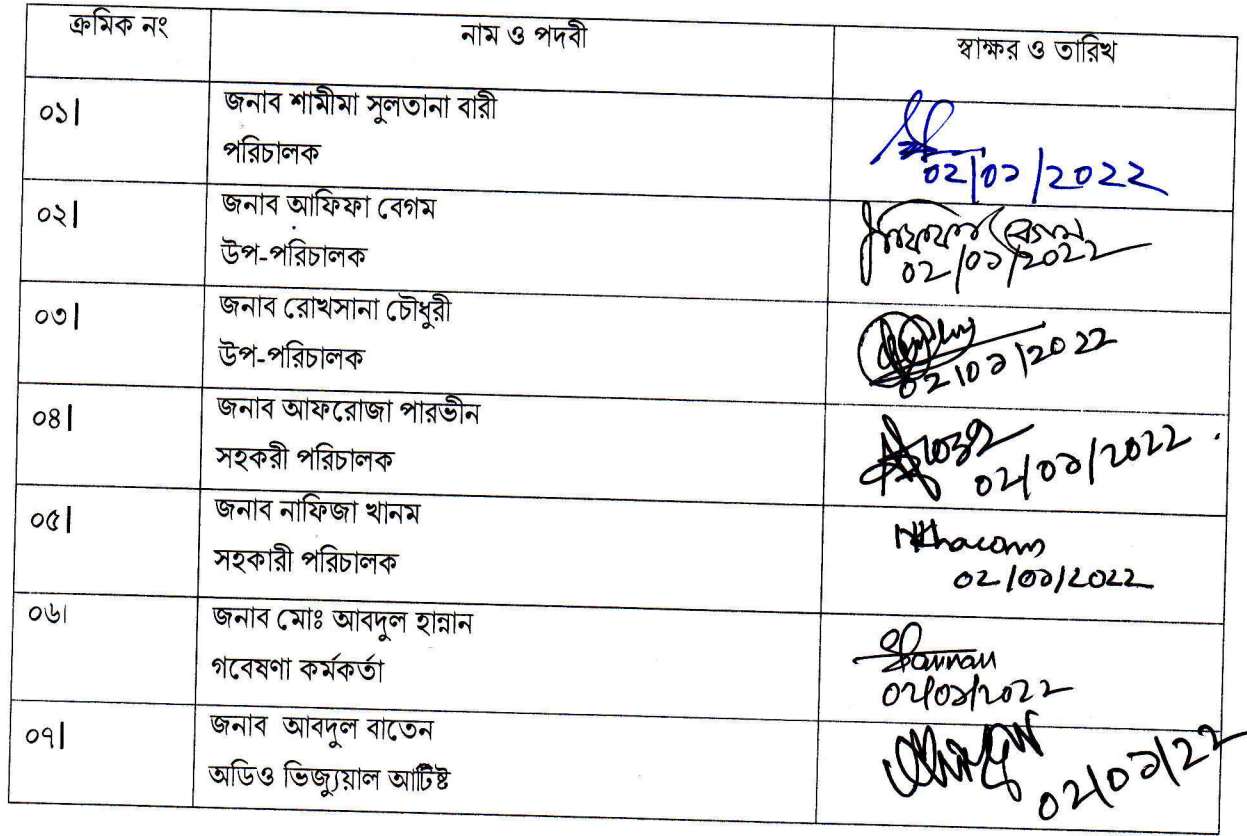 ক্রমিক নং নাম ও পদবী স্বাক্ষর ও তারিখ
০১| জনাব শামীমা সুলতানা বারী
পরিচালক
02/০১/2022
০২| জনাব আফিফা বেগম
উপ-পরিচালক
আফিফা বেগম
02/০১/2022
০৩| জনাব রোখসানা চৌধুরী
উপ-পরিচালক
02/০১/2022
০৪| জনাব আফরোজা পারভীন
সহকরী পরিচালক
02/০১/2022
০৫| জনাব নাফিজা খানম
সহকারী পরিচালক
02/০১/2022
০৬। জনাব মোঃ আবদুল হান্নান
গবেষণা কর্মকর্তা
Hannan
02/০১/2022
০৭| জনাব আবদুল বাতেন
অডিও ভিজ্যুয়াল আর্টিষ্ট
02/০১/22